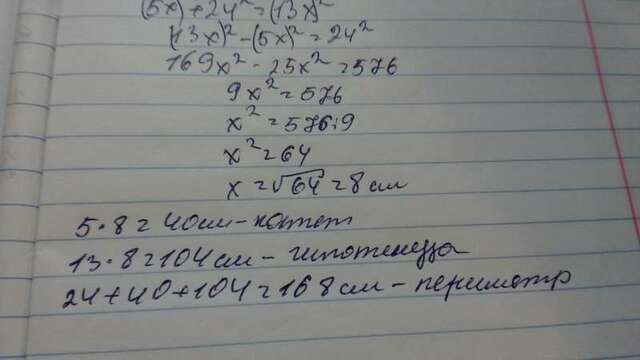 (5x)²+24²=(13x)²
(13x)²-(5x)²=24²
169x²-25x²=576
9x²=576
x²=576:9
x²=64
x=√64=8 см
5·8=40см-катет
13·8=104см-гипотенуза
24+40+104=168см-периметр